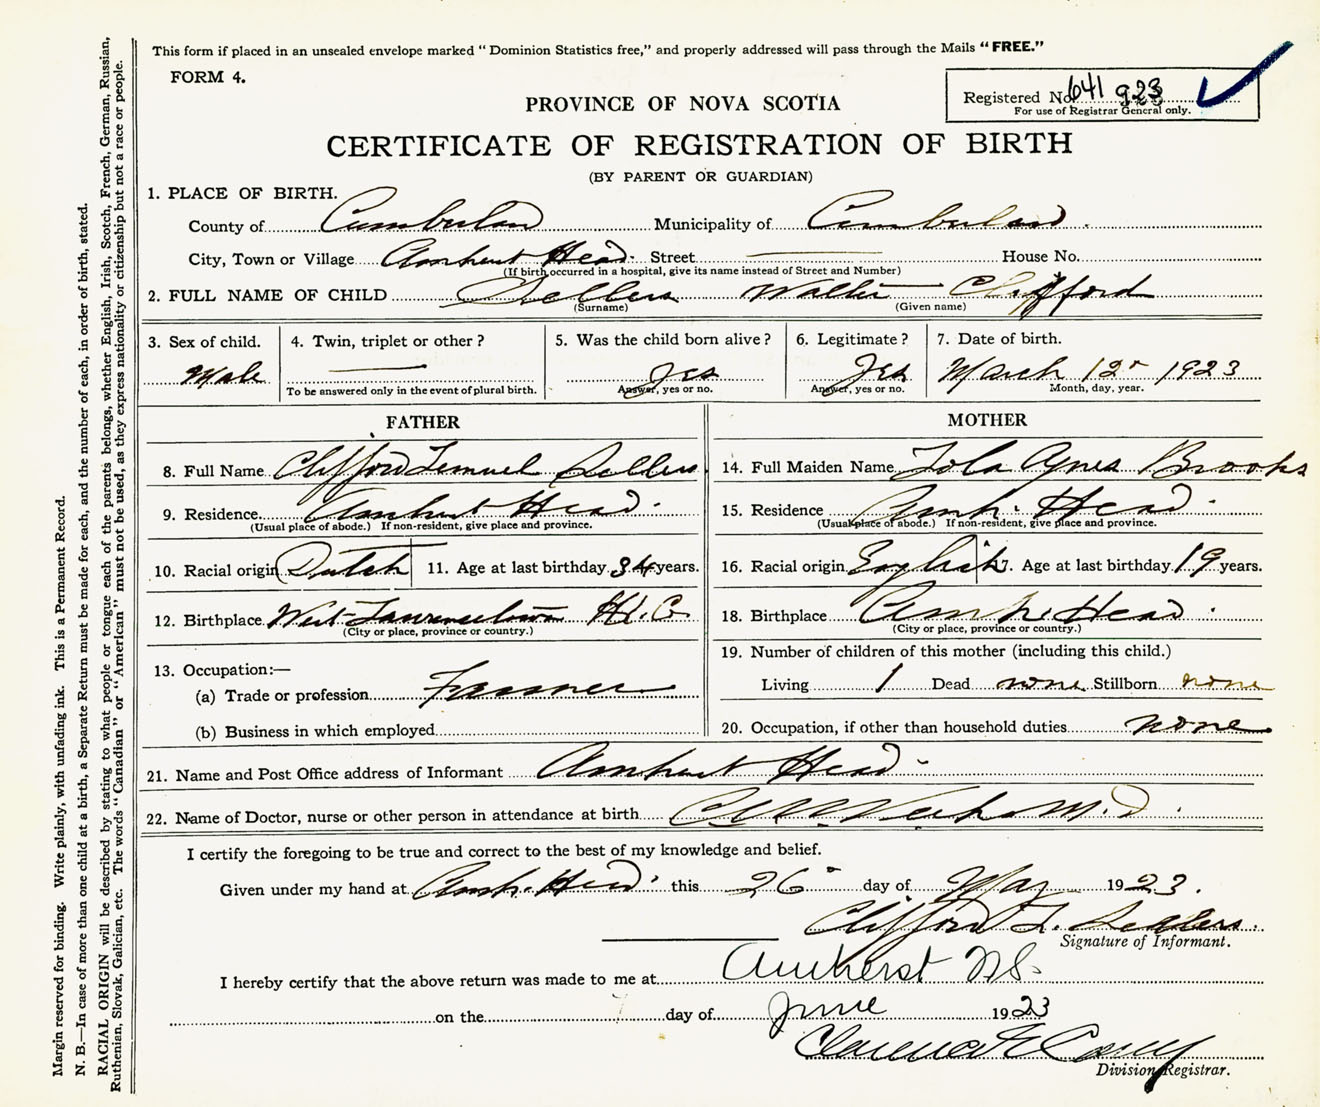 This form if placed in an unsealed envelope marked "Dominion Statistics free," and properly addressed will pass through the Mails "FREE."
FORM 4.
Registered No. 641 923
For use of Registrar General only.
PROVINCE OF NOVA SCOTIA
CERTIFICATE OF REGISTRATION OF BIRTH
(BY PARENT OR GUARDIAN)
1. PLACE OF BIRTH.
County of Cumberland Municipality of Cumberland
City, Town or Village Amherst Head Street House No.
(If birth occurred in a hospital, give its name instead of Street and Number)
2. FULL NAME OF CHILD Sellers Walter Clifford
(Surname) (Given name)
3. Sex of child. 4. Twin, triplet or other? 5. Was the child born alive? 6. Legitimate? 7. Date of birth.
Male Yes Yes March 12 1923
To be answered only in the event of plural birth. Answer, yes or no. Answer, yes or no. Month, day, year.
FATHER MOTHER
8. Full Name Clifford Lemuel Sellers 14. Full Maiden Name Iola Agnes Brooks
9. Residence. Amherst Head. 15. Residence Amh. Head.
(Usual place of abode.) If non-resident, give place and province. (Usual place of abode.) If non-resident, give place and province.
10. Racial origin Dutch 11. Age at last birthday. 34 years. 16. Racial origin English 17. Age at last birthday 19 years.
12. Birthplace. West 18. Birthplace Amh. Head.
(City or place, province or country.) (City or place, province or country.)
13. Occupation:— 19. Number of children of this mother (including this child.)
(a) Trade or profession Farmer Living 1 Dead none Stillborn none
(b) Business in which employed 20. Occupation, if other than household duties none
21. Name and Post Office address of Informant Amherst Head.
22. Name of Doctor, nurse or other person in attendance at birth M.D.
I certify the foregoing to be true and correct to the best of my knowledge and belief.
Given under my hand at Amh. Head. this 26 day of May 1923.
Clifford L. Sellers.
Signature of Informant.
I hereby certify that the above return was made to me at Amherst N.S.
on the day of June 1923
Clarence E
Division Registrar.
Margin reserved for binding. Write plainly, with unfading ink. This is a Permanent Record.
N. B.—In case of more than one child at a birth, a Separate Return must be made for each, and the number of each, in order of birth, stated.
RACIAL ORIGIN will be described by stating to what people or tongue each of the parents belongs, whether English, Irish, Scotch, French, German, Russian,
Ruthenian, Slovak, Galician, etc. The words "Canadian" or "American" must not be used, as they express nationality or citizenship but not a race or people.